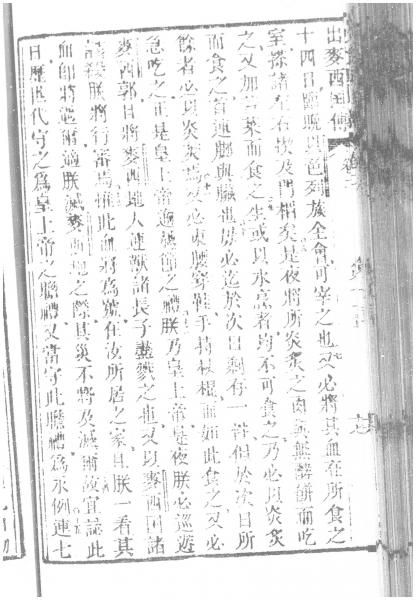 出麥西國傳
十四日臨晚以色列族全會可宰之也又必將其血在所食之
室搽諸左右柣及門楣矣是夜將所炎炙之肉與無酵餅而吃
之又加苦菜而食之生或以水烹者均不可食之乃必以炎炙
而食之首連腿與臟也毋必迄於次日剩存一餘但於次日所
餘者必以炎炙焉又必束腰穿鞋手持杖棍而如此食之又必
急吃之正是皇上帝逾越節之禮朕乃皇上帝是夜朕必巡遊
麥西郭日將麥西地人連獸諸長子盡戮之也又以麥西國諸
菩殺朕將行審焉惟此血將為號在汝所居之家且朕一看其
血即將過爾過朕滅麥西地之際其災不將及滅爾故宜誌此
日歷世代守之為皇上帝之瞻禮又當守此瞻禮為永例連七